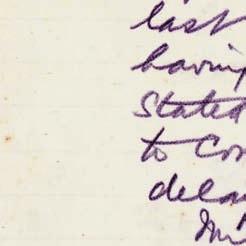 last
having
Stated
to Con
dela